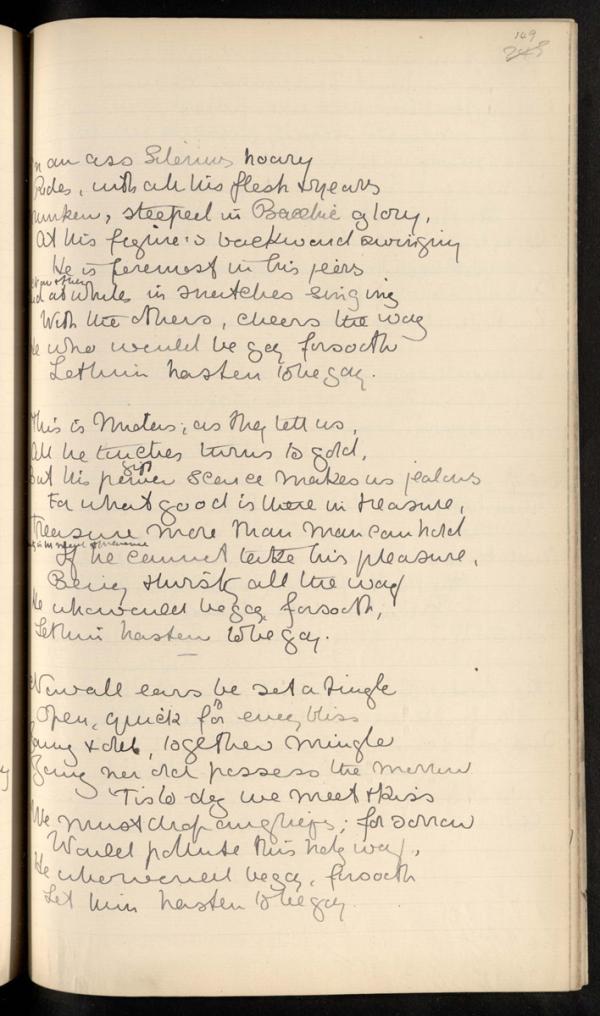 149
248
n an ass Silenus hoary
Rides, with all his flesh & years
runken, steeped in Bacchic glory,
At his figure's backward swinging
He is foremost in his jeers
nd at whiles in snatches singing
With the others, cheers the way
He who would be gay forsooth
Let him hasten to be gay.
This is Midas; as they tell us,
All he touches turns to gold,
But his power gift scarce makes us jealous
For what good is there in treasure,
Treasure more than man can hold
If he cannot take his pleasure,
Being thirsty all the way
He who would be gay, forsooth,
Let him hasten to be gay.
Now all ears be set a tingle
Open, quick to for every bliss
Young & old, together mingle
Young nor old possess the morrow
'Tis to-day we meet & kiss
We must drop anything; for sorrow
Would pollute this holy way,
He who would be gay, forsooth
Let him hasten to be gay.